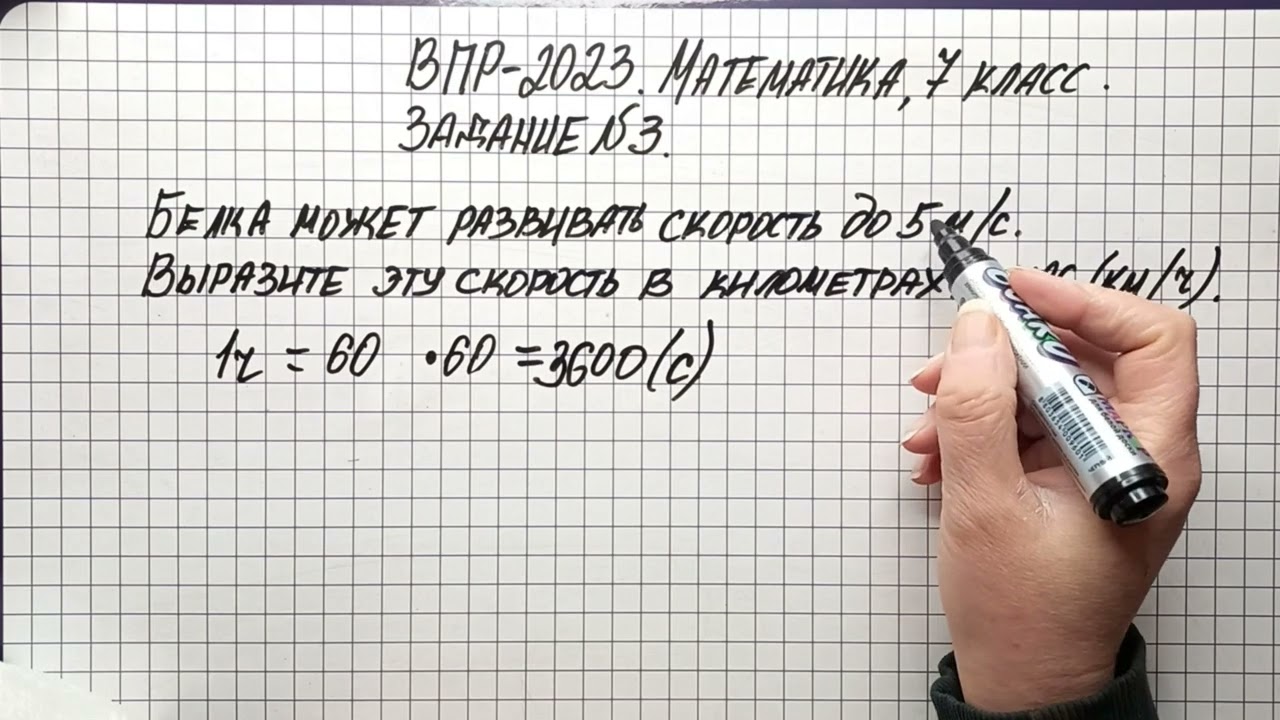 ВПР-2023. МАТЕМАТИКА, 7 КЛАСС.
ЗАДАНИЕ №3.
БЕЛКА МОЖЕТ РАЗВИВАТЬ СКОРОСТЬ ДО 5 м/с.
ВЫРАЗИТЕ ЭТУ СКОРОСТЬ В КИЛОМЕТРАХ (км/ч).
1ч = 60 • 60 = 3600 (с)